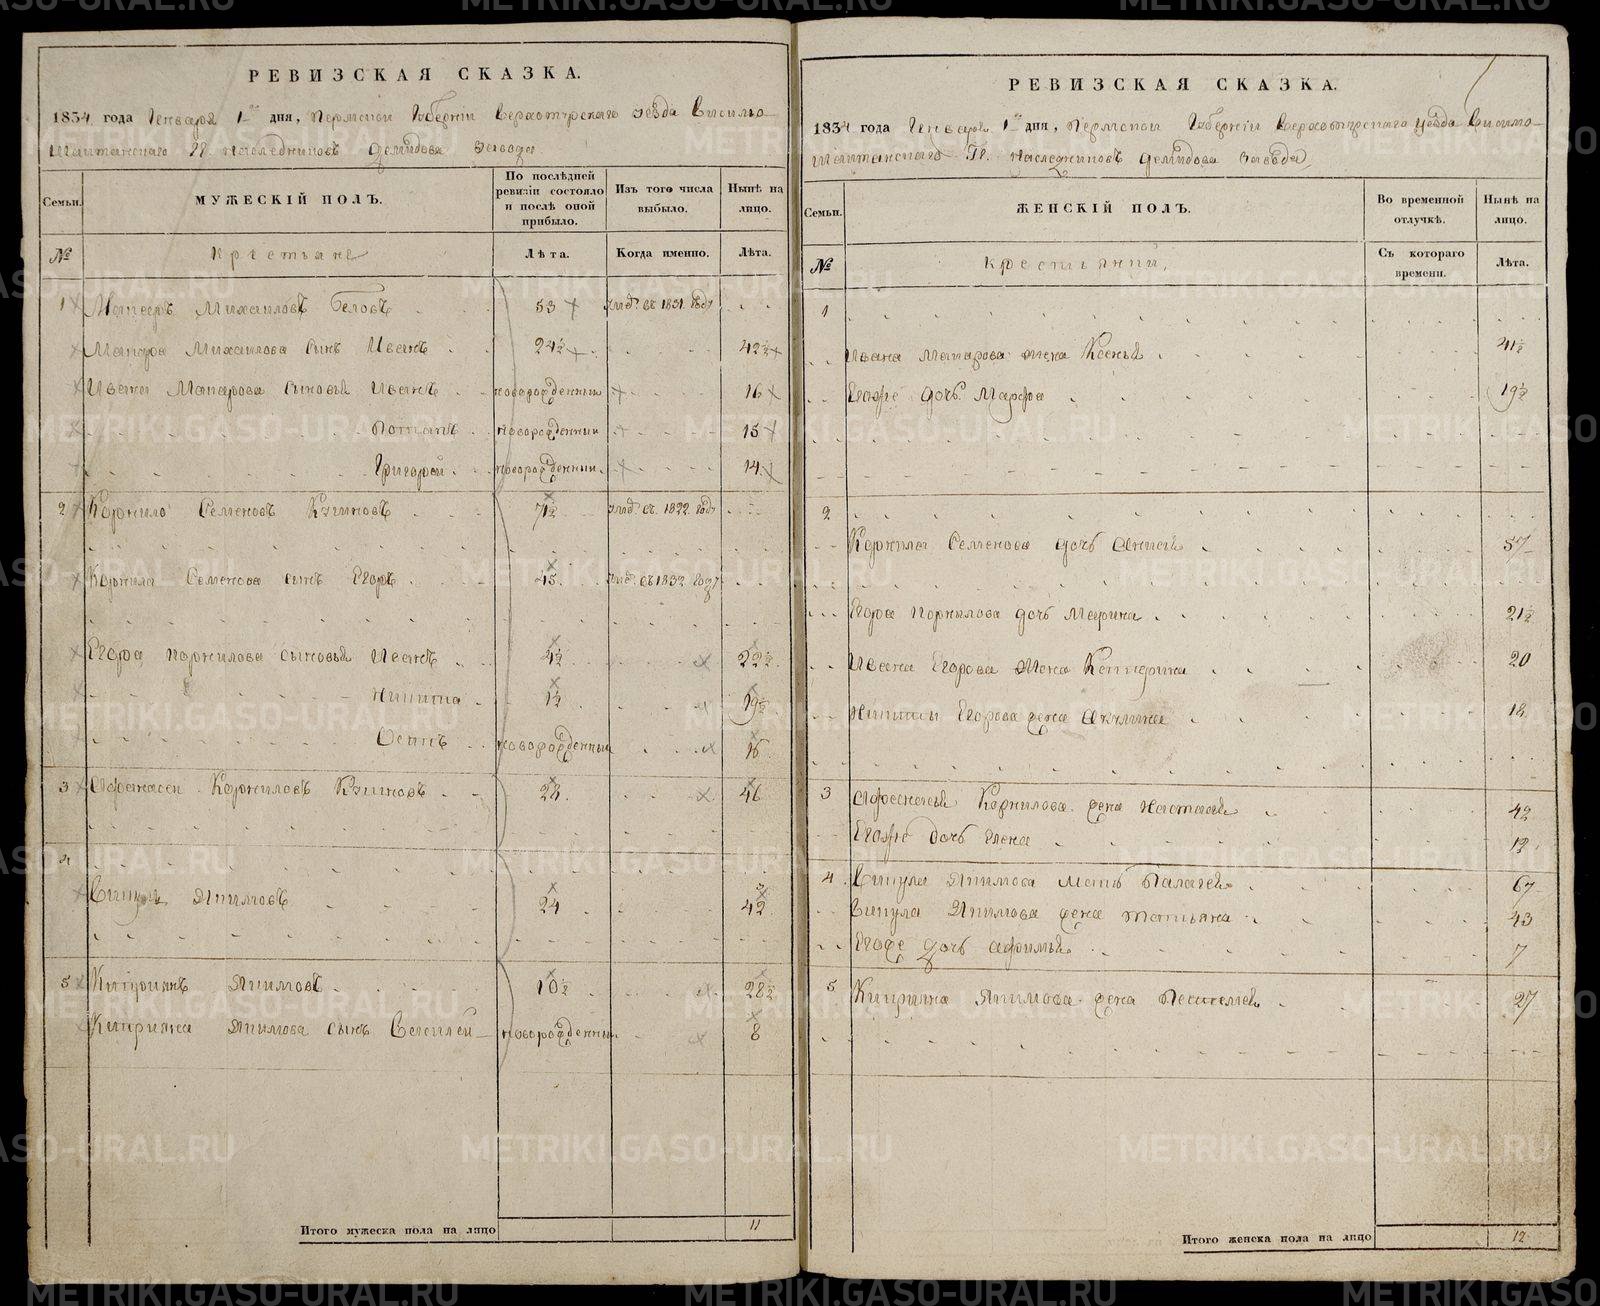 РЕВИЗСКАЯ СКАЗКА.
1834 года Генваря 1го дня, Пермской Губернiи Верхотурскаго уѣзда Висимо-
Шайтанскаго Гг. наслѣдниковъ Демидова завода
Семьи.
МУЖЕСКIЙ ПОЛЪ.
По послѣдней ревизiи состояло и послѣ оной прибыло.
Изъ того числа выбыло.
Нынѣ на лицо.
№
Крестьяне
Лѣта.
Когда именно.
Лѣта.
1 Макаръ Михайловъ Бѣловъ 53 умер. въ 1831 году
Макара Михайлова сынъ Иванъ 24½ 42½
Ивана Макарова сыновья Иванъ новорожденный 16
Потапъ новорожденный 15
Григорей новорожденный 14
2 Корнило Семеновъ 71½ умер. въ 1822 году
Корнила Семенова сынъ Егоръ 45 умер. въ 1832 году
Егора Корнилова сыновья Иванъ 4½ 22½
Никита 1½ 19½
Осипъ новорожденный 16
3 Афонасей Корниловъ 28 46
4
Викулъ Якимовъ 24 42
5 Кипріянъ Якимовъ 10½ 28½
Кипріяна Якимова сынъ Василей новорожденный 8
Итого мужеска пола на лицо 11
РЕВИЗСКАЯ СКАЗКА.
1834 года Генваря 1го дня, Пермской Губернiи Верхотурскаго уѣзда Висимо-
Шайтанскаго Гг. наслѣдниковъ Демидова завода
Семьи.
ЖЕНСКIЙ ПОЛЪ.
Во временной отлучкѣ.
Нынѣ на лицо.
№
Крестьянки
Съ котораго времени.
Лѣта.
1
Ивана Макарова жена Ксенья 41½
Егоже дочь Марфа 19½
2
Корнилы Семенова дочь 57
Егора Корнилова дочь Марина 21½
Ивана Егорова жена Катерина 20
Никиты Егорова жена Акулина 18
3 Афонасья Корнилова жена Настасья 42
Егоже дочь Елена 12
4 Викулы Якимова мать Палагея 67
Викула Якимова жена Татьяна 43
Егоже дочь Афимья 7
5 Кипріяна Якимова жена 27
Итого женска пола на лицо 12
METRIKI.GASO-URAL.RU